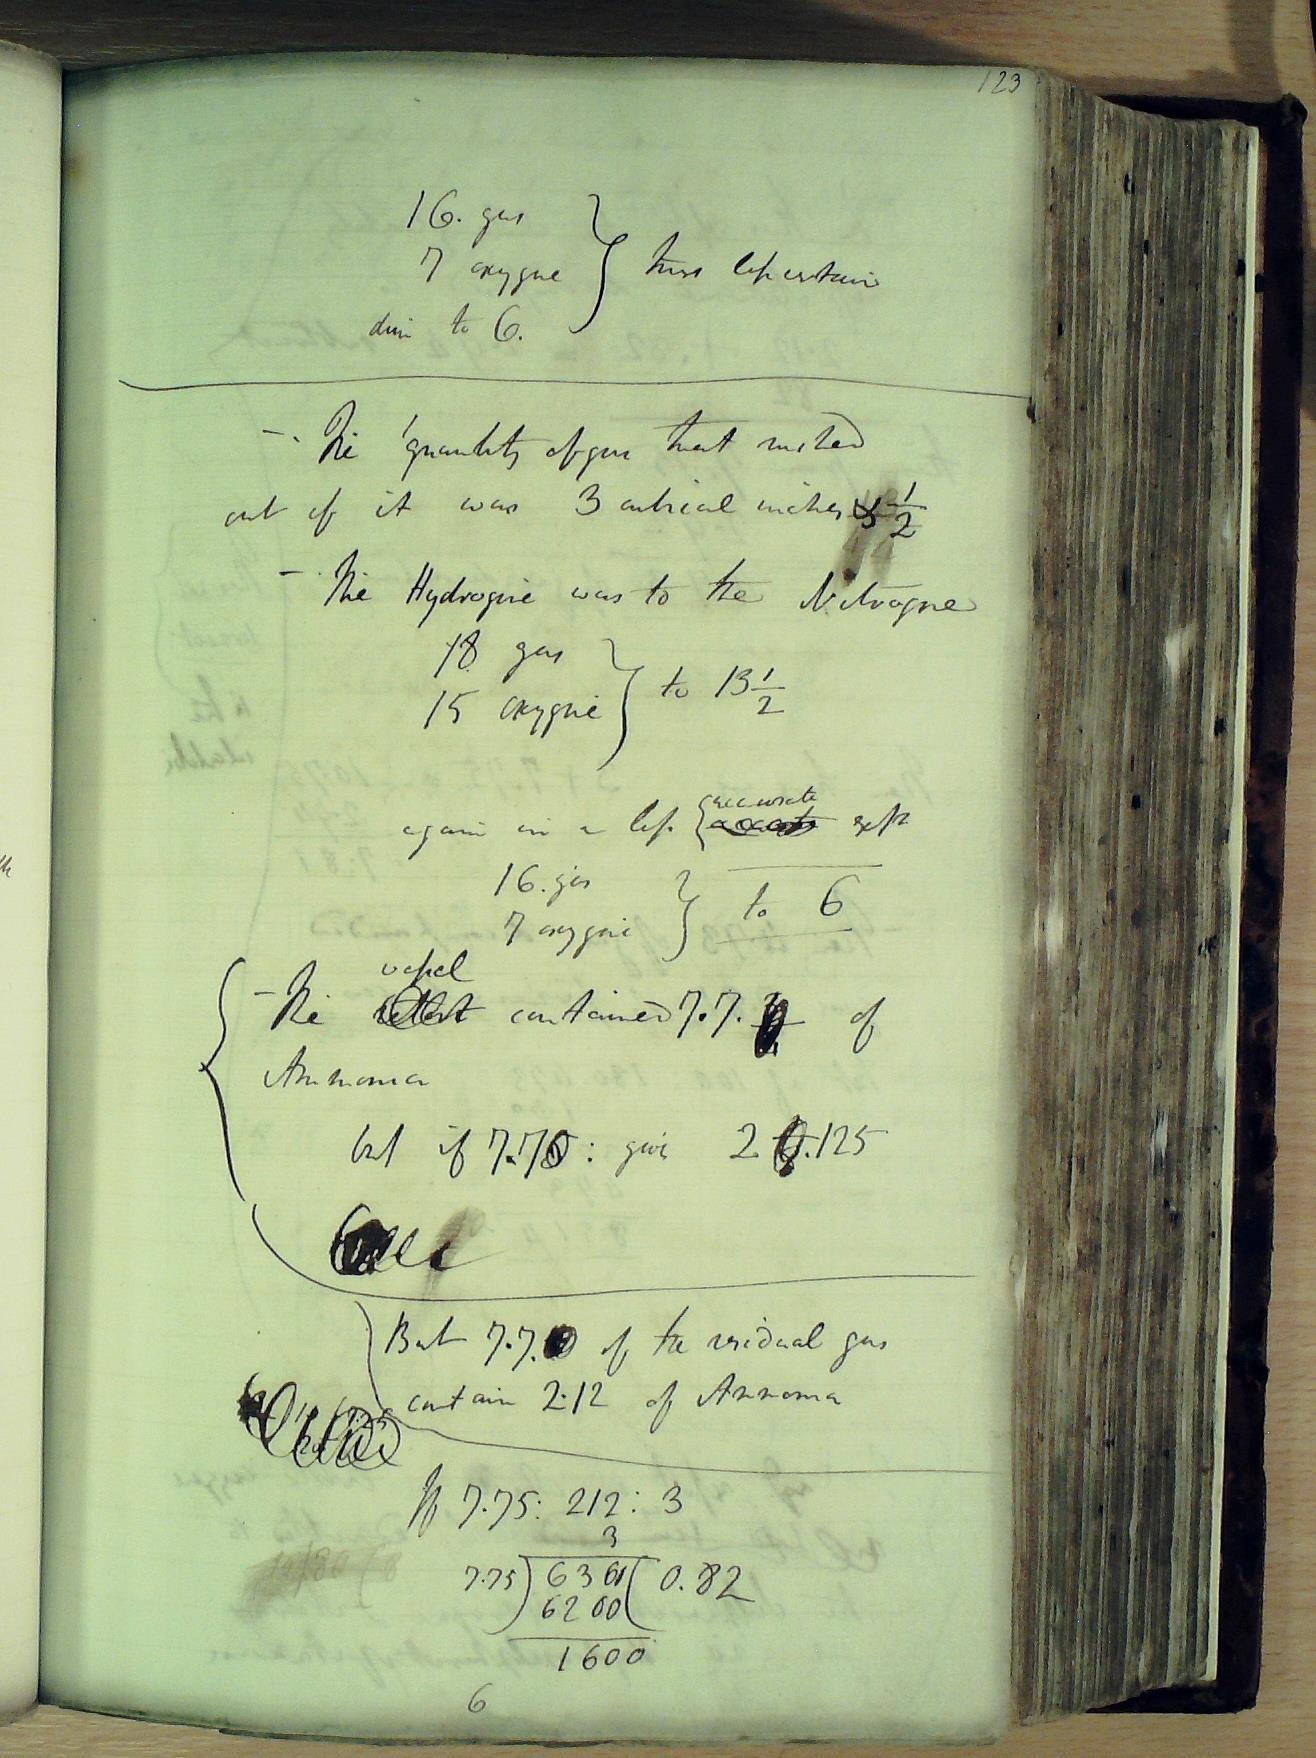 123
16. gas
7 oxygne } this less certain
dim to 6.
-. The quantity of gas that rushed
out of it was 3 cubical inches 1/2
-. The Hydrogene was to the Nitrogene
18 gas
15 oxygne } to 13 1/2
again in a less { accurate expt
16. gas
7 oxygne } to 6
vessel
- The contained 7.7. of
Ammonia
but if 7.75 : give 2.125
But 7.7. of the residual gas
contain 2.12 of Ammonia
If 7.75: 212: 3
3
7.75) 636 ( 0.82
6200
1600
6